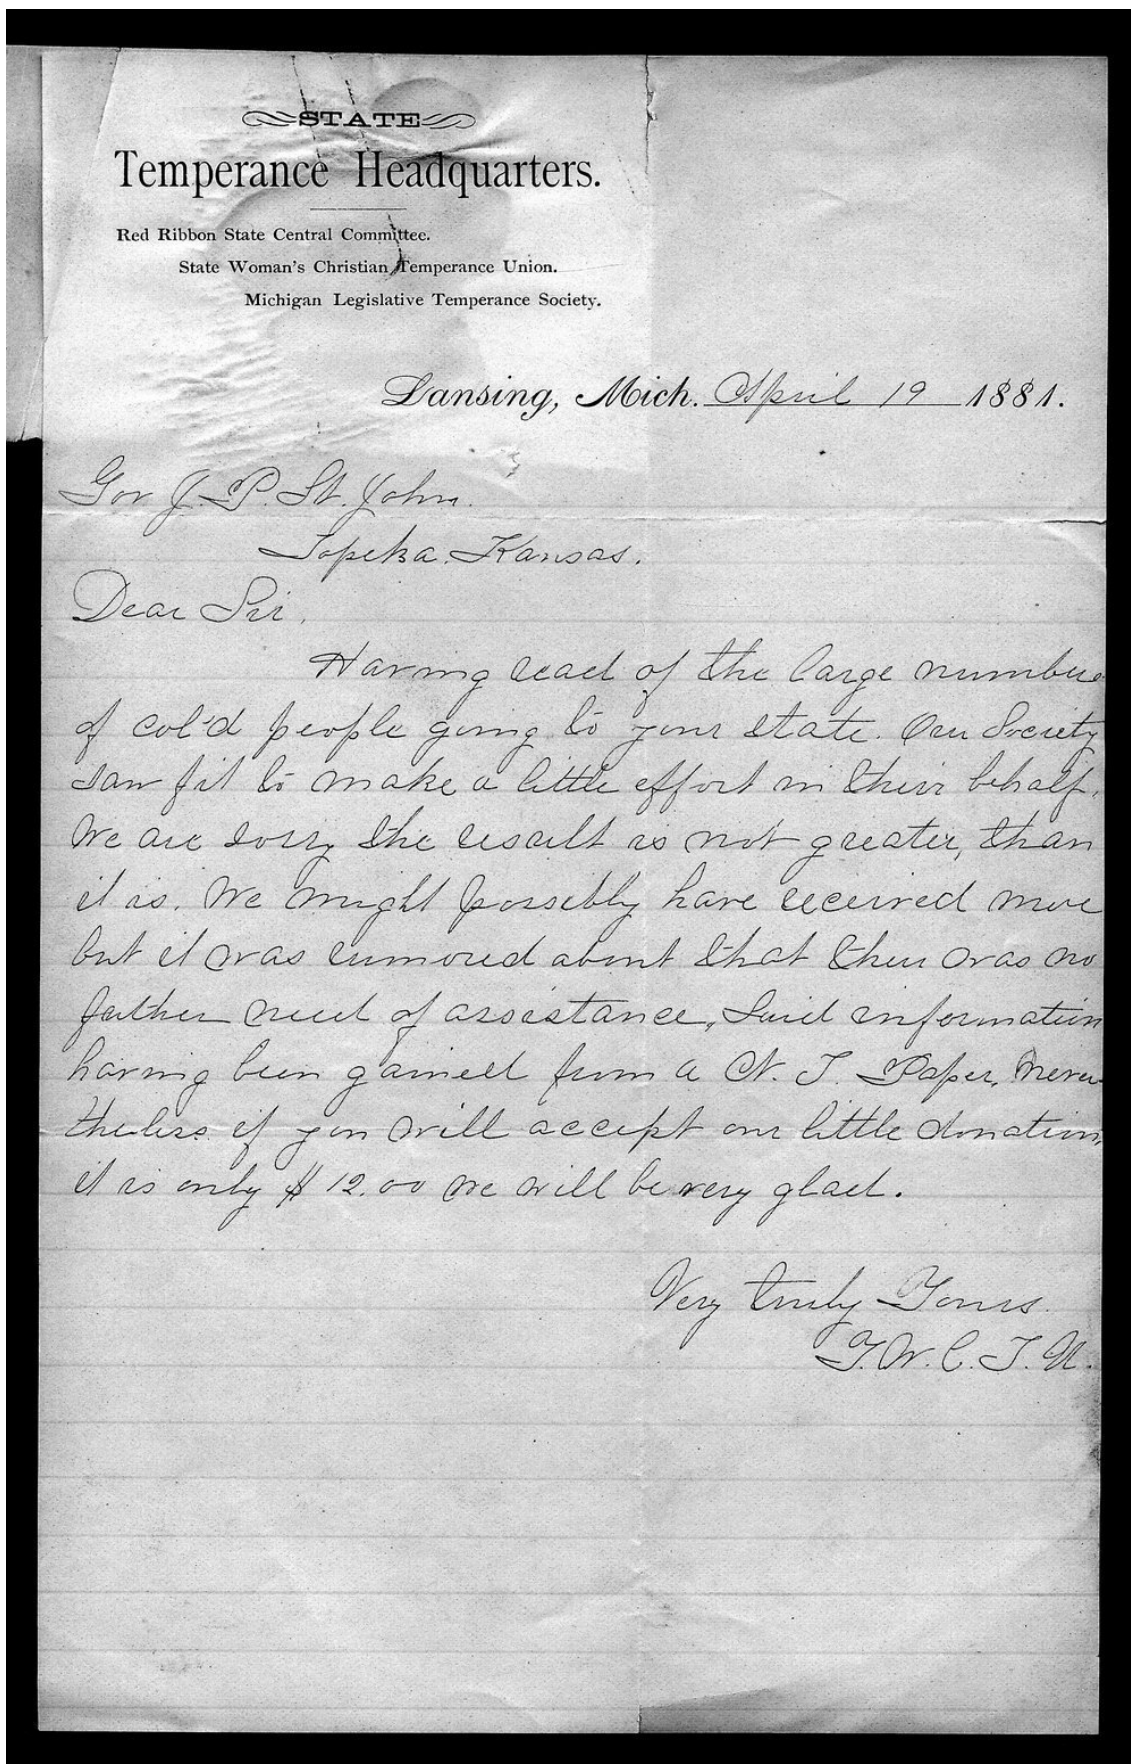 STATE
Temperance Headquarters.
Red Ribbon State Central Committee.
State Woman's Christian Temperance Union.
Michigan Legislative Temperance Society.
Lansing, Mich. April 19 1881.
Gov J. P. St. John.
Topeka. Kansas.
Dear Sir,
Having read of the large number
of col'd people going to your state. Our Society
saw fit to make a little effort in their behalf.
We are sorry the result is not greater, than
it is. We might possibly have received more
but it was rumored about that there was no
futher need of assistance, Said information
having been gained from a N. Y. Paper. Never
theless if you will accept our little donation,
it is only $12.00 we will be very glad.
Very truly Yours
Y. W. C. T. U.